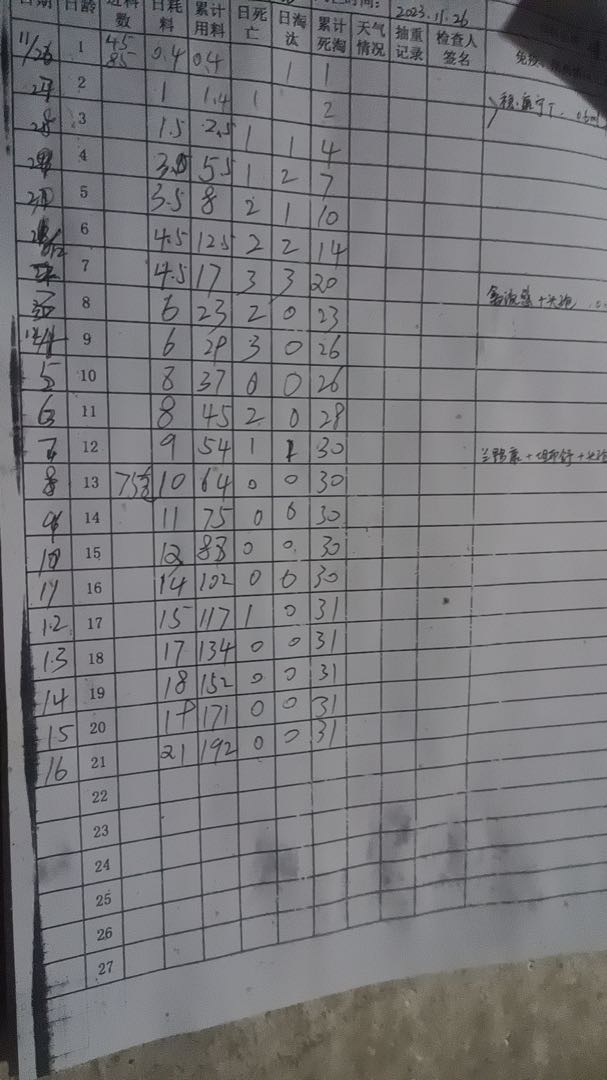 2023.11.26
日期 日龄 进料数 日耗料 累计用料 日死亡 日淘汰 累计死淘 天气情况 抽重记录 检查人签名
11/26 1 45 85 0.4 0.4 1 1
27 2 1 1.4 1 2
28 3 1.5 2.5 1 1 4
29 4 3.0 5.5 1 2 7
5 3.5 8 2 1 10
6 4.5 12.5 2 2 14
7 4.5 17 3 3 20
8 6 23 2 0 23
9 6 29 3 0 26
5 10 8 37 0 0 26
6 11 8 45 2 0 28
7 12 9 54 1 1 30
8 13 10 64 0 0 30
9 14 11 75 0 0 30
10 15 12 88 0 0 30
11 16 14 102 0 0 30
12 17 15 117 1 0 31
13 18 17 134 0 0 31
14 19 18 152 0 0 31
15 20 19 171 0 0 31
16 21 21 192 0 0 31
22
23
24
25
26
27